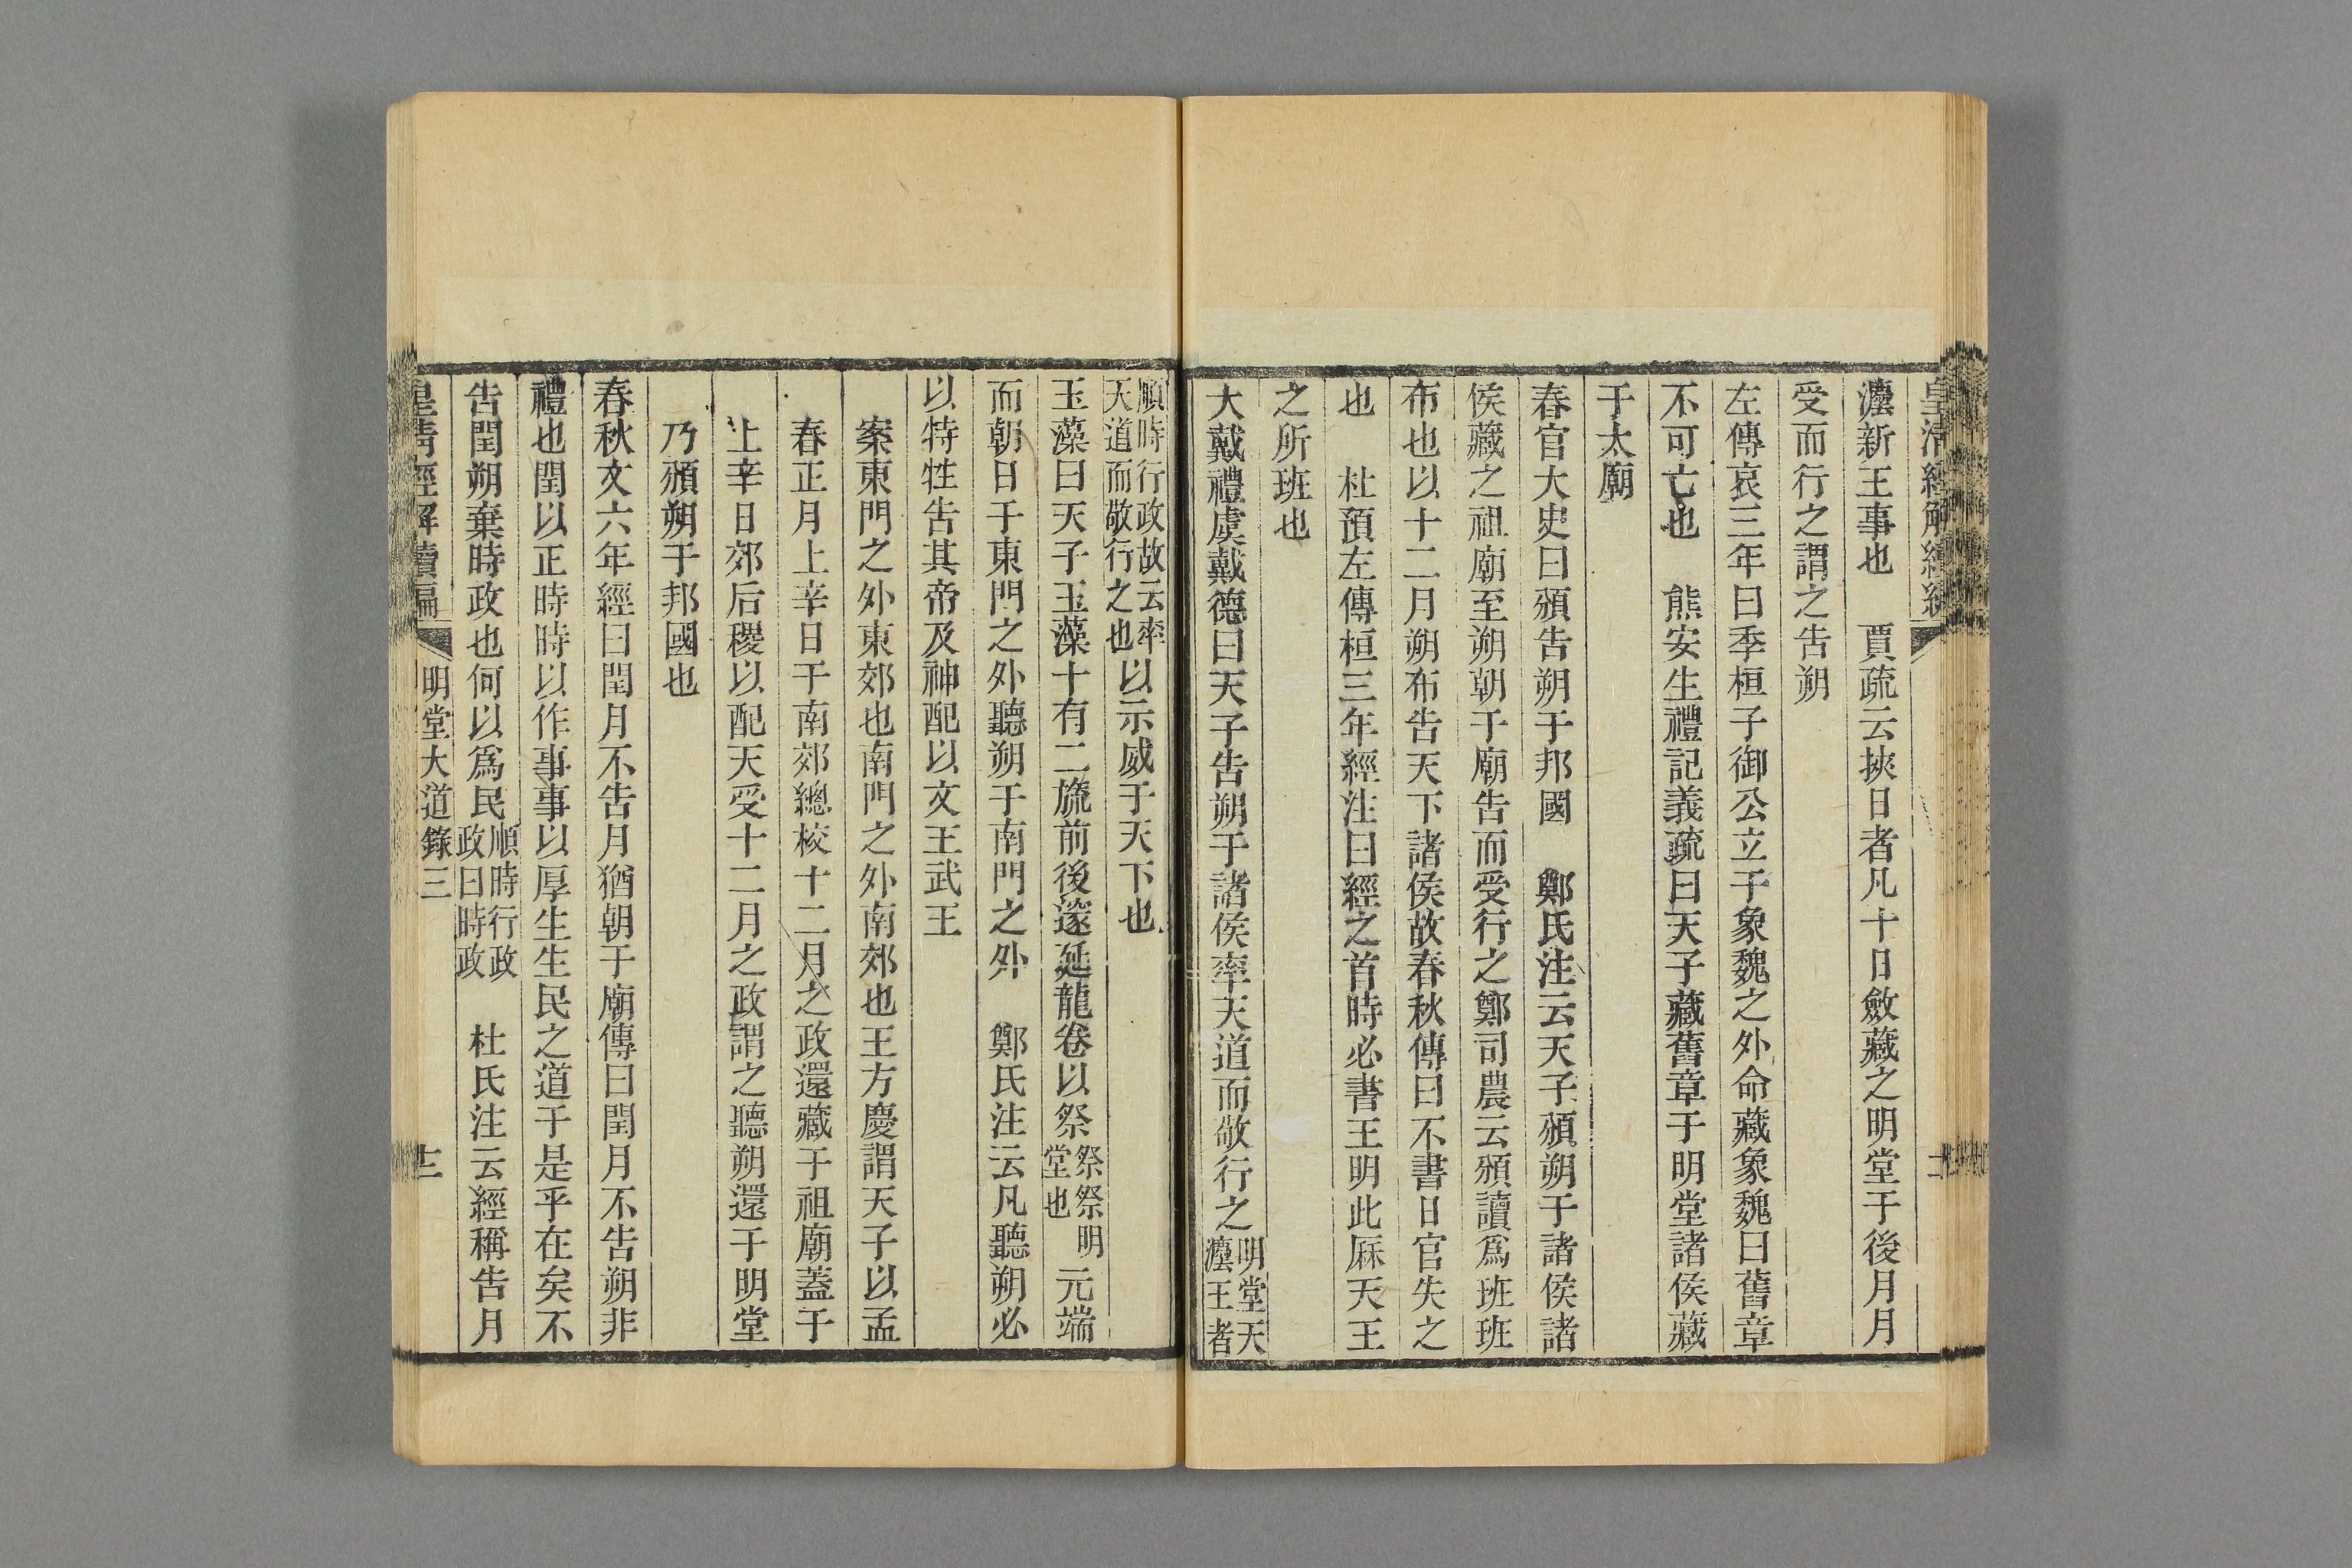 皇清經解續編
灋新王事也　賈疏云挾日者凡十日斂藏之明堂于後月月
受而行之謂之告朔
左傳哀三年曰季桓子御公立于象魏之外命藏象魏曰舊章
不可亡也　熊安生禮記義疏曰天子藏舊章于明堂諸侯藏
于太廟
春官大史曰頒告朔于邦國　鄭氏注云天子頒朔于諸侯諸
侯藏之祖廟至朔朝于廟告而受行之鄭司農云頒讀爲班班
布也以十二月朔布告天下諸侯故春秋傳曰不書日官失之
也　杜預左傳桓三年經注曰經之首時必書王明此厤天王
之所班也
大戴禮虞戴德曰天子告朔于諸侯率天道而敬行之明堂天
灋王者
順時行政故云率
天道而敬行之也以示威于天下也
玉藻曰天子玉藻十有二旒前後邃延龍卷以祭祭祭明
堂也元端
而朝日于東門之外聽朔于南門之外　鄭氏注云凡聽朔必
以特牲告其帝及神配以文王武王
案東門之外東郊也南門之外南郊也王方慶謂天子以孟
春正月上辛日于南郊總校十二月之政還藏于祖廟蓋于
上辛日郊后稷以配天受十二月之政謂之聽朔還于明堂
乃頒朔于邦國也
春秋文六年經曰閏月不告月猶朝于廟傳曰閏月不告朔非
禮也閏以正時時以作事事以厚生生民之道于是乎在矣不
告閏朔棄時政也何以爲民順時行政
政曰時政　杜氏注云經稱告月
皇清經解續編　明堂大道錄三　十二